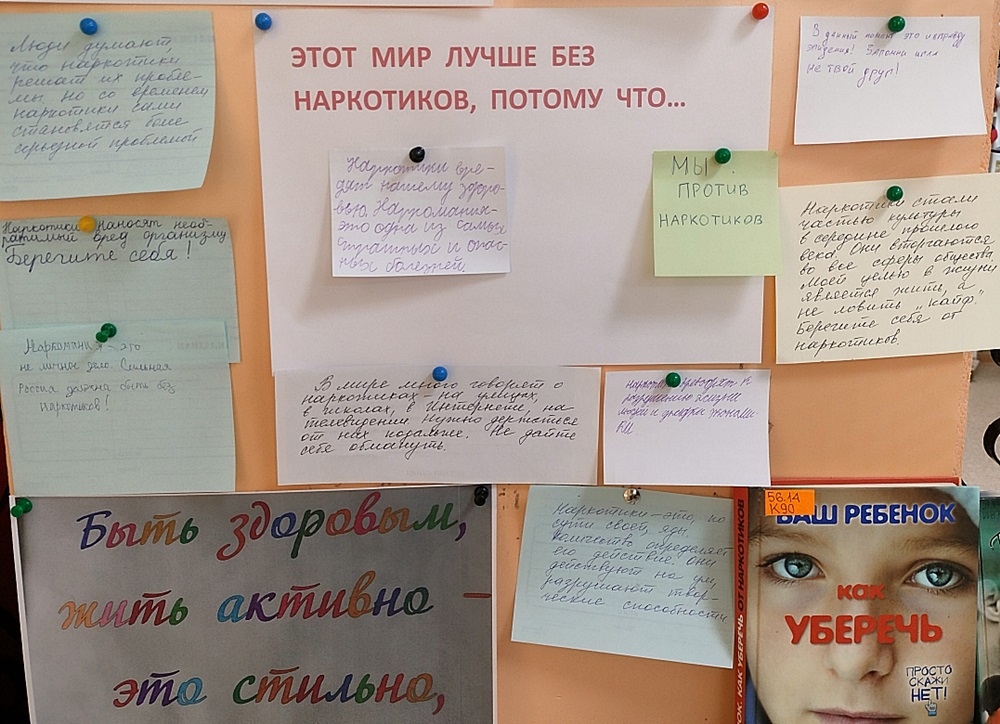 Люди думают,
что наркотики
решат их пробле-
мы, но со временем
наркотики сами
становятся более
серьезной проблемой
ЭТОТ МИР ЛУЧШЕ БЕЗ
НАРКОТИКОВ, ПОТОМУ ЧТО...
В данный момент это
эпидемия! Запомни
не твой друг!
Наркотики вре-
дят нашему здоро-
вью. Наркомания-
это одна из самых
страшных и опас-
ных болезней.
МЫ
ПРОТИВ
НАРКОТИКОВ
Наркотики стали
частью культуры
в середине прошлого
века. Они вторгаются
во все сферы общества.
Моей целью в жизни
является жить, а
не ловить "кайф."
Берегите себя от
наркотиков.
Наркотики наносят необ-
ратимый вред организму
Берегите себя!
Наркомания - это
не личное дело. Сильная
Россия должна быть без
наркотиков!
В мире много говорят о
наркотиках - на улицах,
в школах, в Интернете, на
телевидении. Нужно держаться
от них подальше. Не дайте
себя обмануть.
приводят к
разрушению жизни
людей и
Быть здоровым,
жить активно –
это стильно,
Наркотики - это, по
сути своей, яды,
количество определяет
его действие. Они
действуют на ум,
разрушают твор-
ческие способности
ОК. КАК УБЕРЕЧЬ ОТ НАРКОТИКОВ
56.14
К90
ВАШ РЕБЕНОК
КАК
УБЕРЕЧЬ
ПРОСТО
СКАЖИ
НЕТ!